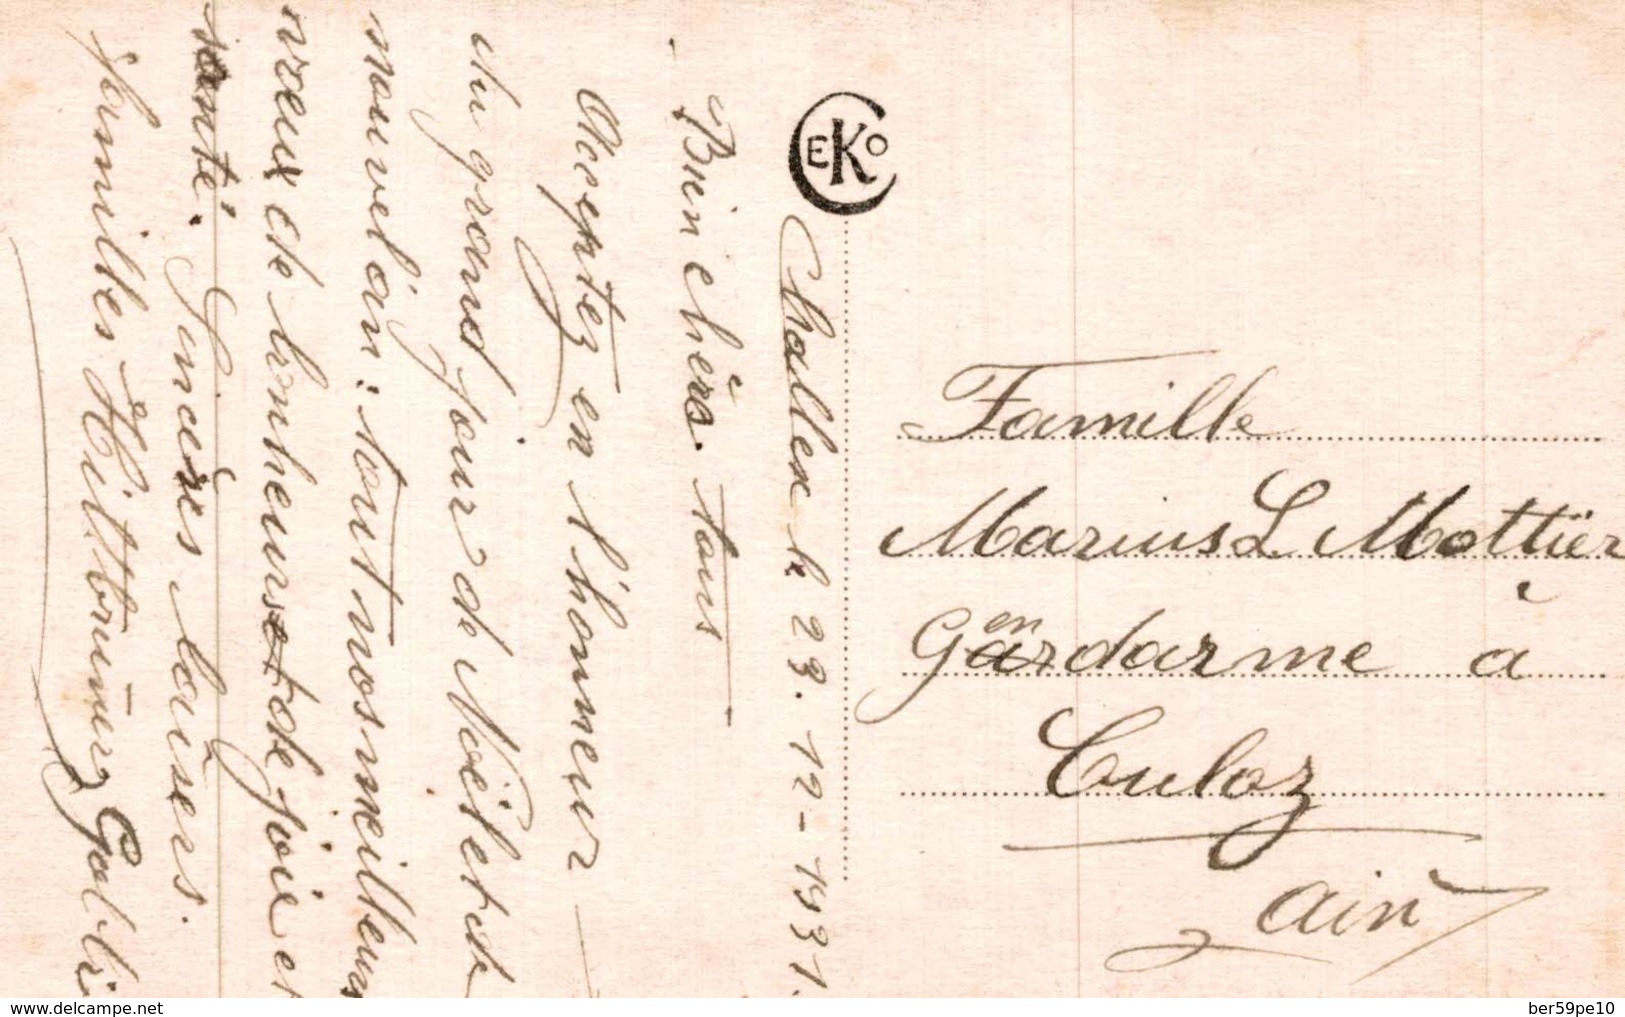 CEKO
Challex le 23.12-1931.
Bien chèrs tous
Acceptez en l'honneur
du grand jour de Noël et de
nouvel an: tout nos meilleurs
vœux de bonheurs et de joie et
santé. Sincères baisers.
familles Hiltbrunner Galli
Famille
Marius L Mottier
Gendarme à
Culoz
ain
www.delcampe.net
ber59pe10